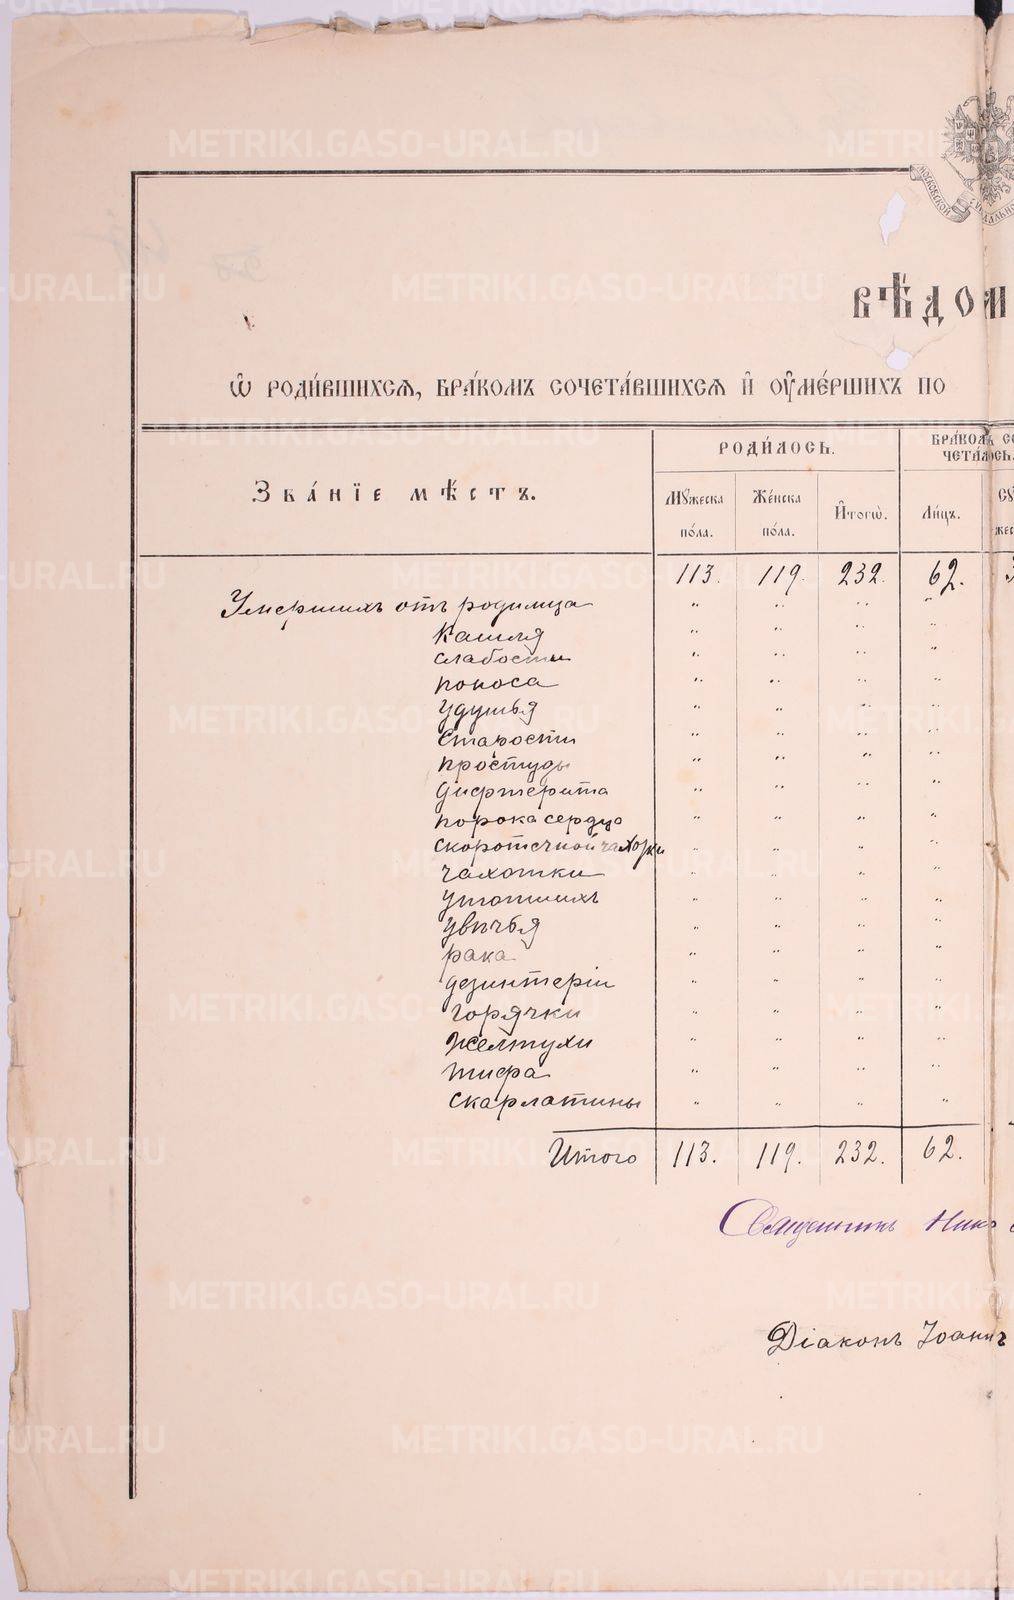 МОСКОВСКОЙ
ВѢДОМ
Ѡ РОДИ́ВШИХСѦ, БРА́КОМЪ СОЧЕТА́ВШИХСѦ И҆ ОУ҆МЕ́РШИХЪ ПО
ЗВА́НІЕ МѢ́СТЪ.
РОДИ́ЛОСЬ.
БРА́КОМЪ СО
ЧЕТА́ЛОСЬ.
Мꙋ́жеска по́ла.
Же́нска по́ла.
И҆тогѡ̀.
Ли́цъ.
113. 119. 232. 62.
Умершихъ отъ родимца
Кашля
слабости
поноса
удушья
Старости
простуды
дифтерита
порока сердца
скоротечной чахотки
чахотки
утопшихъ
увѣчья
рака
дезинтеріи
горячки
Желтухи
тифа
скарлатины
Итого 113. 119. 232. 62.
Священникъ Нико
Діаконъ Іоаннъ
METRIKI.GASO-URAL.RU